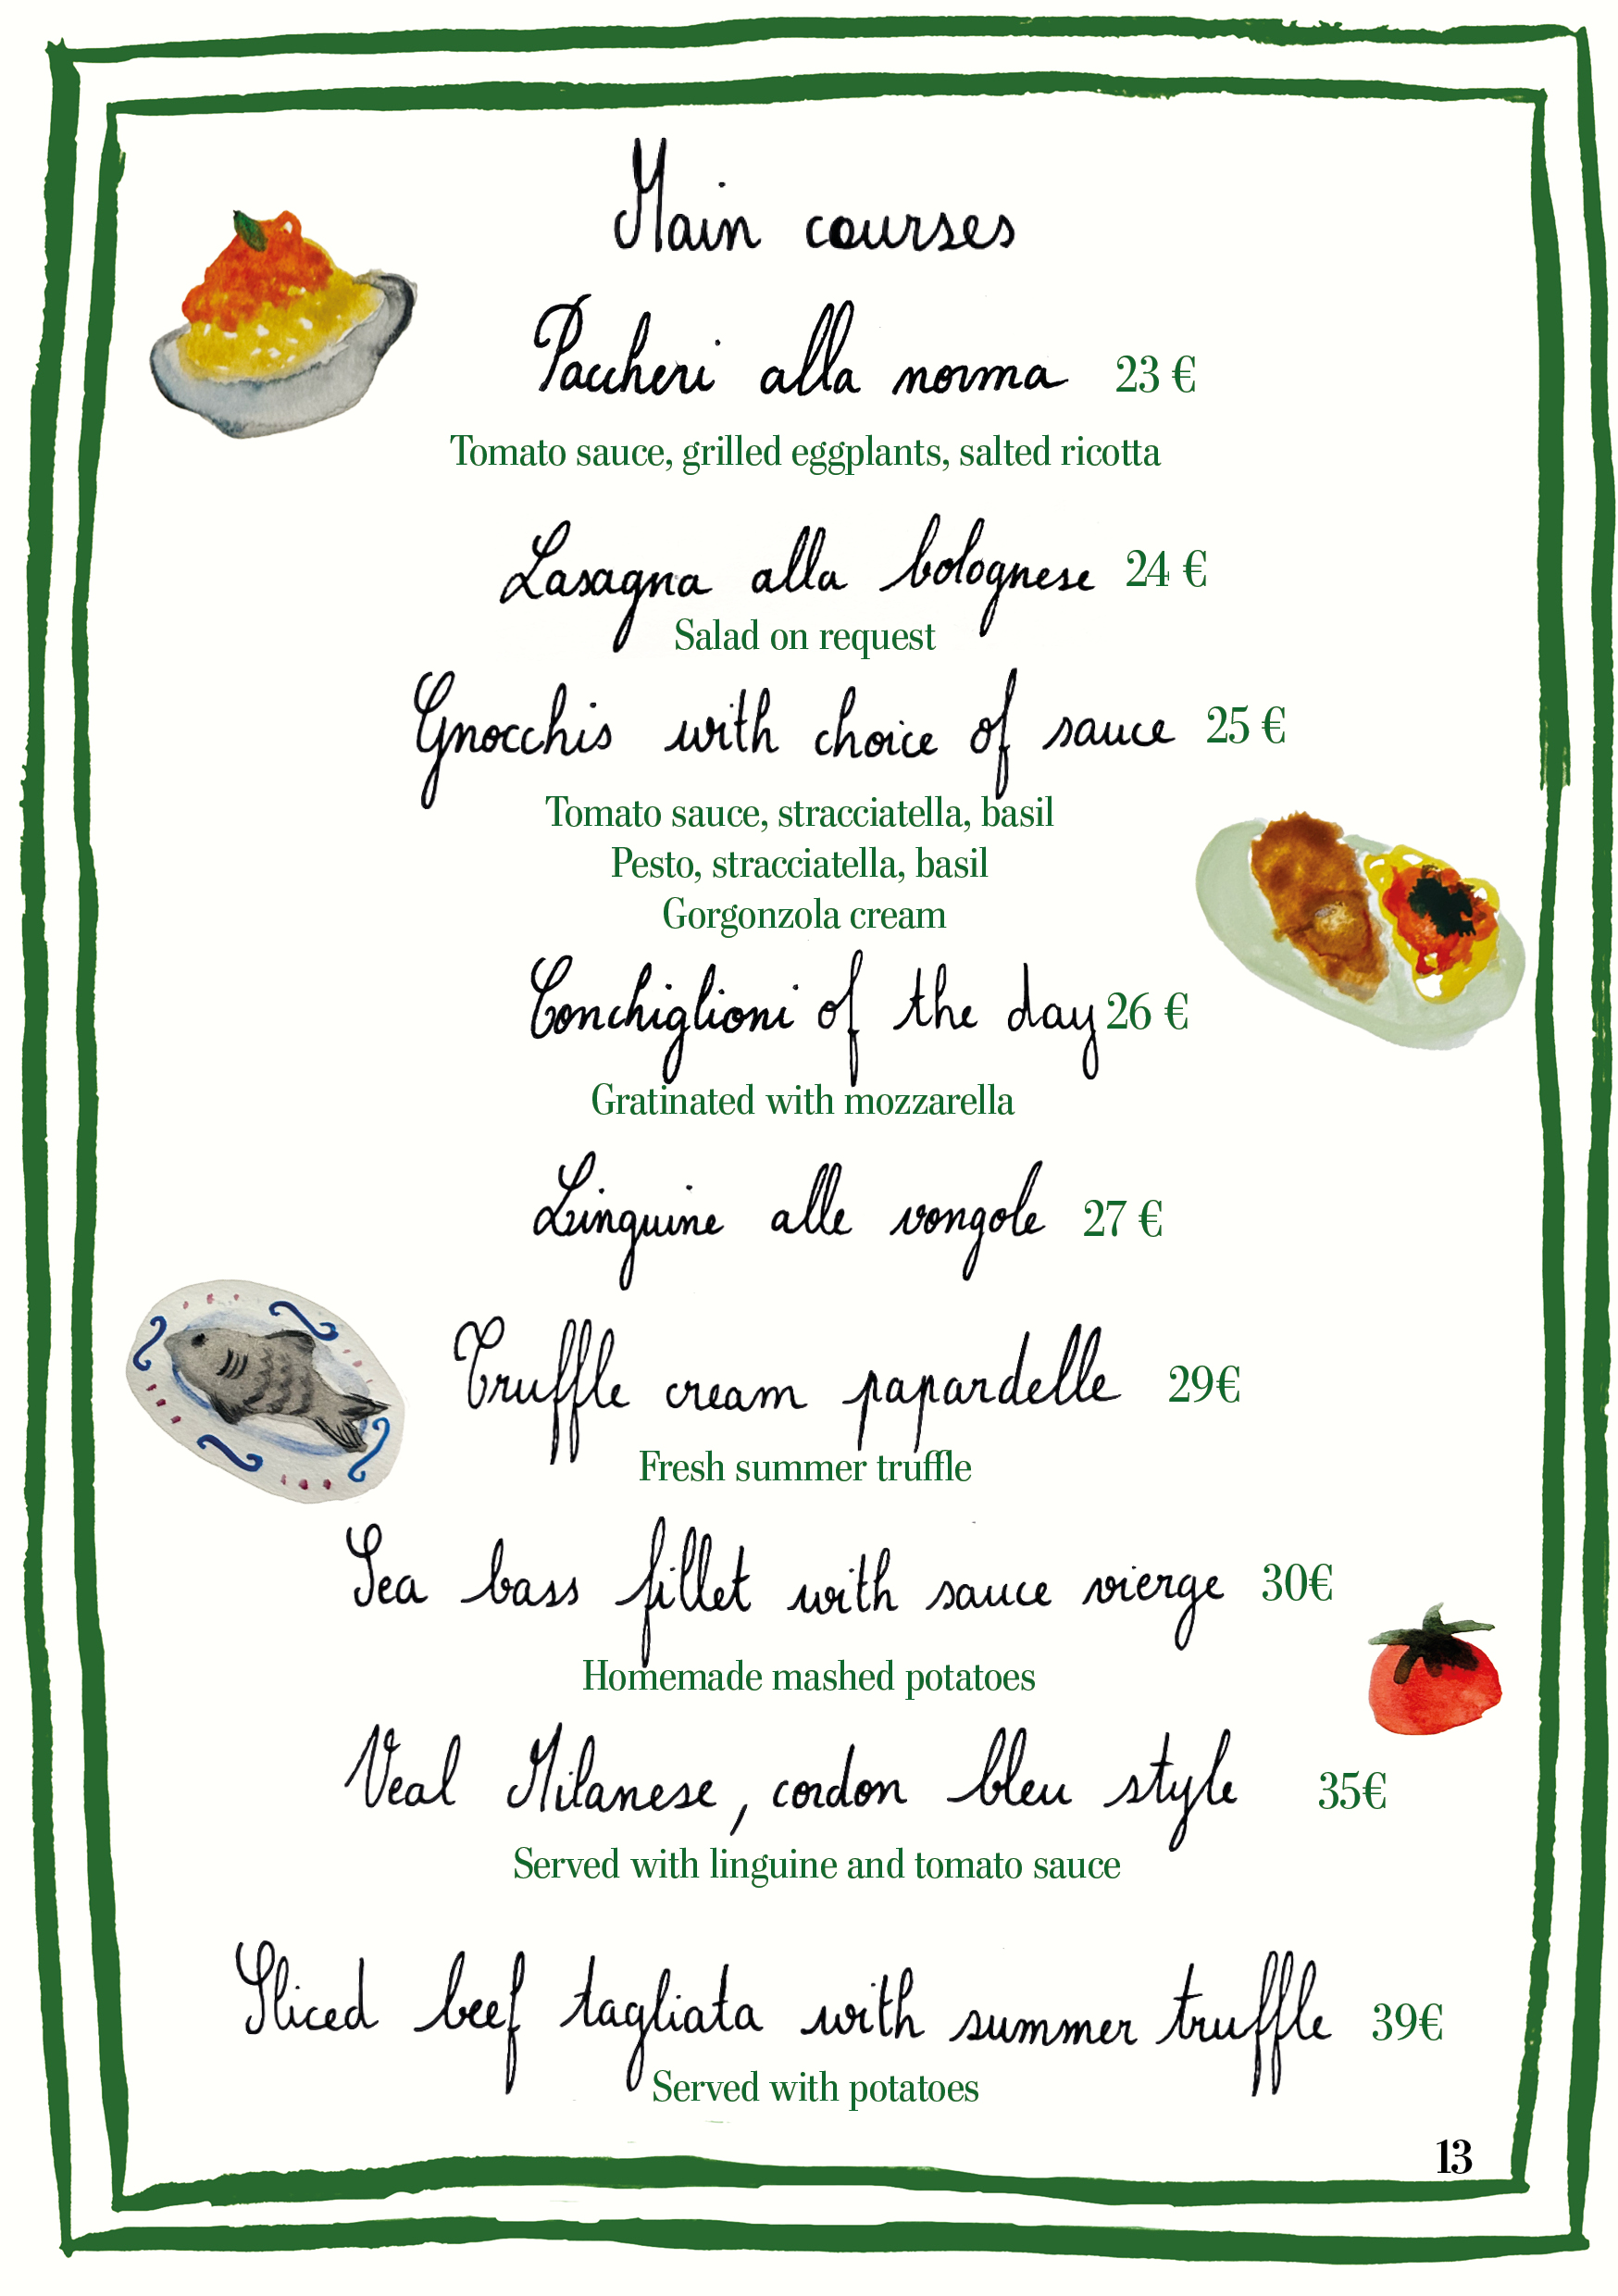 Main courses
Paccheri alla norma 23 €
Tomato sauce, grilled eggplants, salted ricotta
Lasagna alla bolognese 24 €
Salad on request
Gnocchis with choice of sauce 25 €
Tomato sauce, stracciatella, basil
Pesto, stracciatella, basil
Gorgonzola cream
Conchiglioni of the day 26 €
Gratinated with mozzarella
Linguine alle vongole 27 €
Truffle cream papardelle 29€
Fresh summer truffle
Sea bass fillet with sauce vierge 30€
Homemade mashed potatoes
Veal Milanese, cordon bleu style 35€
Served with linguine and tomato sauce
Sliced beef tagliata with summer truffle 39€
Served with potatoes
13